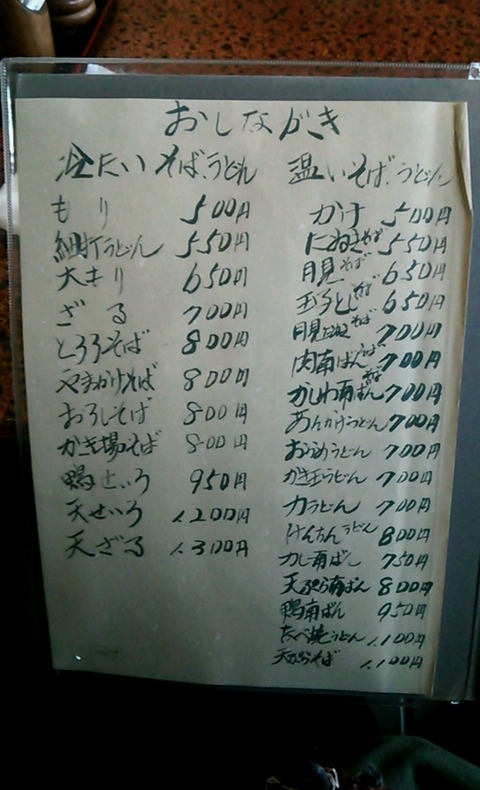 おしながき
冷たいそば、うどん
もり 500円
細打うどん 550円
大もり 650円
ざる 700円
とろろそば 800円
やまかけそば 800円
おろしそば 800円
かき揚そば 800円
鴨せいろ 950円
天せいろ 1.200円
天ざる 1.300円
温いそば、うどん
かけ 500円
たぬきそば 550円
月見そば 650円
玉子とじそば 650円
月見 そば 700円
肉南ばんそば 700円
かしわ南ばん 700円
あんかけうどん 700円
おかめうどん 700円
かき玉うどん 700円
力うどん 700円
けんちんうどん 800円
カレー南ばん 750円
天ぷら南ばん 800円
鴨南ばん 950円
なべ焼うどん 1.100円
天ぷらそば 1.100円